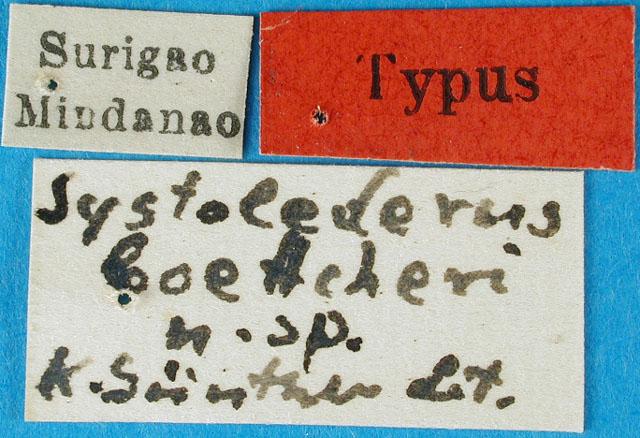 Surigao
Mindanao
Typus
Systolederus
boettcheri
n. sp.
K. Günther det.